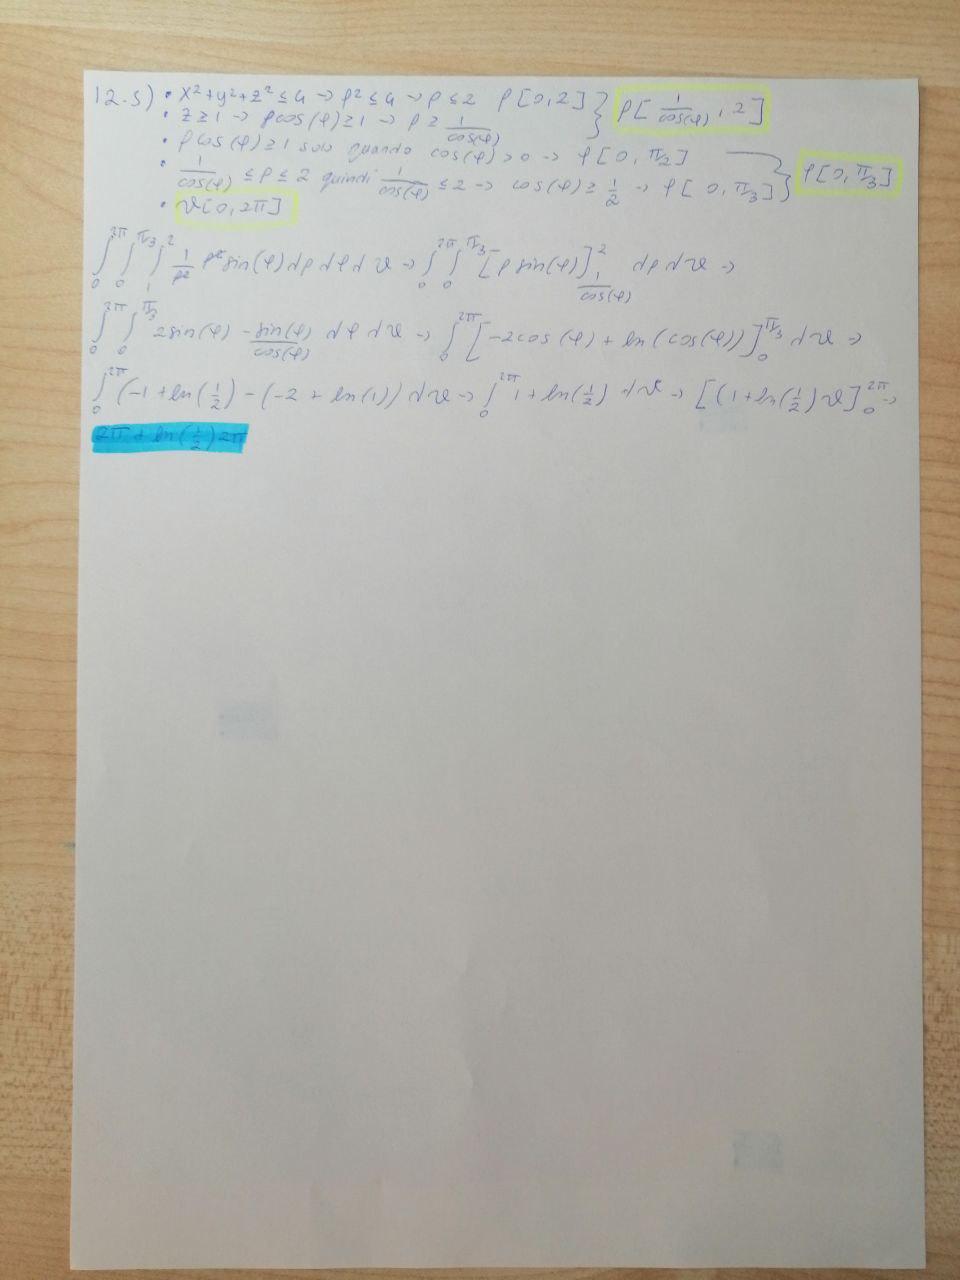 12.5) • x²+y²+z² ≤ 4 → ρ² ≤ 4 → ρ ≤ 2 ρ[0,2] } ρ[1/cos(φ), 2]
• z ≥ 1 → ρcos(φ) ≥ 1 → ρ ≥ 1/cos(φ)
• ρcos(φ) ≥ 1 solo quando cos(φ) > 0 → φ[0, π/2]
• 1/cos(φ) ≤ ρ ≤ 2 quindi 1/cos(φ) ≤ 2 → cos(φ) ≥ 1/2 → φ[0, π/3] } φ[0, π/3]
• ϑ[0, 2π]
∫₀^2π ∫₀^π/3 ∫₁^2 1/ρ² ρ² sin(φ) dρ dφ dϑ → ∫₀^2π ∫₀^π/3 [ρ sin(φ)]^2_1/cos(φ) dφ dϑ →
∫₀^2π ∫₀^π/3 2sin(φ) - sin(φ)/cos(φ) dφ dϑ → ∫₀^2π [-2cos(φ) + ln(cos(φ))]₀^π/3 dϑ →
∫₀^2π (-1 + ln(1/2) - (-2 + ln(1)) dϑ → ∫₀^2π 1 + ln(1/2) dϑ → [(1 + ln(1/2) ϑ]₀^2π →
2π + ln(1/2) 2π